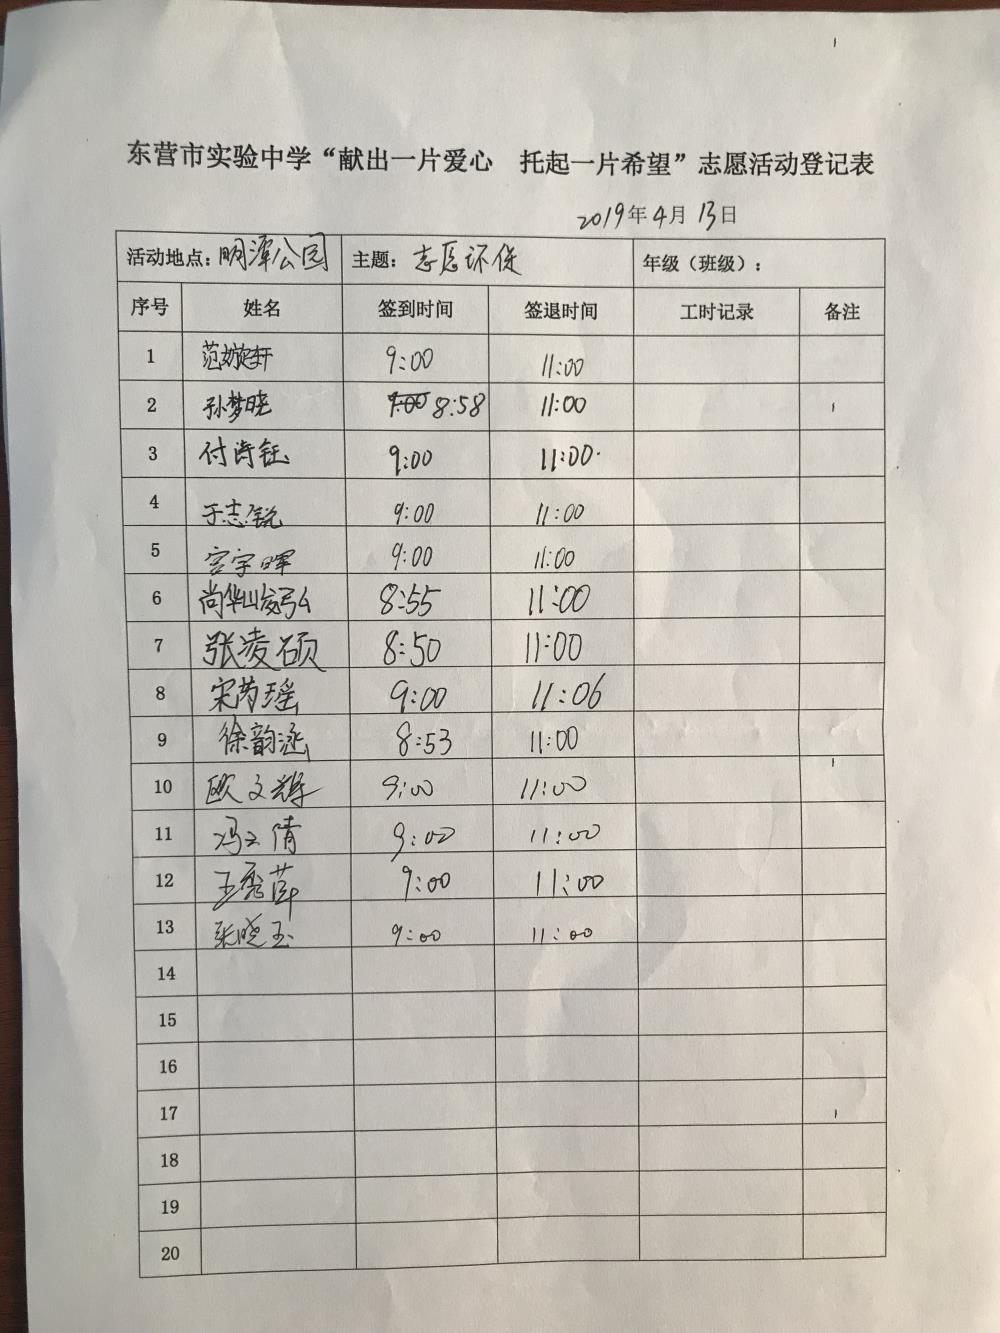 东营市实验中学“献出一片爱心 托起一片希望”志愿活动登记表
2019年4月13日
活动地点：明潭公园 主题：志愿环保 年级（班级）：
序号 姓名 签到时间 签退时间 工时记录 备注
1 9:00 11:00
2 孙梦晓 9:00 8:58 11:00
3 付诗钰 9:00 11:00
4 于志锐 9:00 11:00
5 宫宇晖 9:00 11:00
6 8:55 11:00
7 张凌硕 8:50 11:00
8 宋芮瑶 9:00 11:06
9 徐韵涵 8:53 11:00
10 欧文辉 9:00 11:00
11 冯文倩 9:00 11:00
12 9:00 11:00
13 张晓玉 9:00 11:00
14
15
16
17
18
19
20